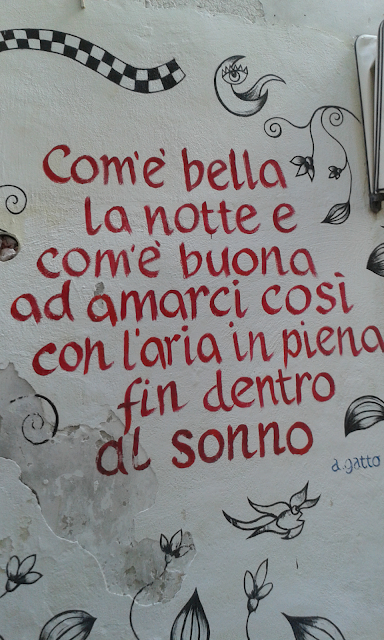 Com'è bella
la notte e
com'è buona
ad amarci così
con l'aria in piena
fin dentro
al sonno
a.gatto